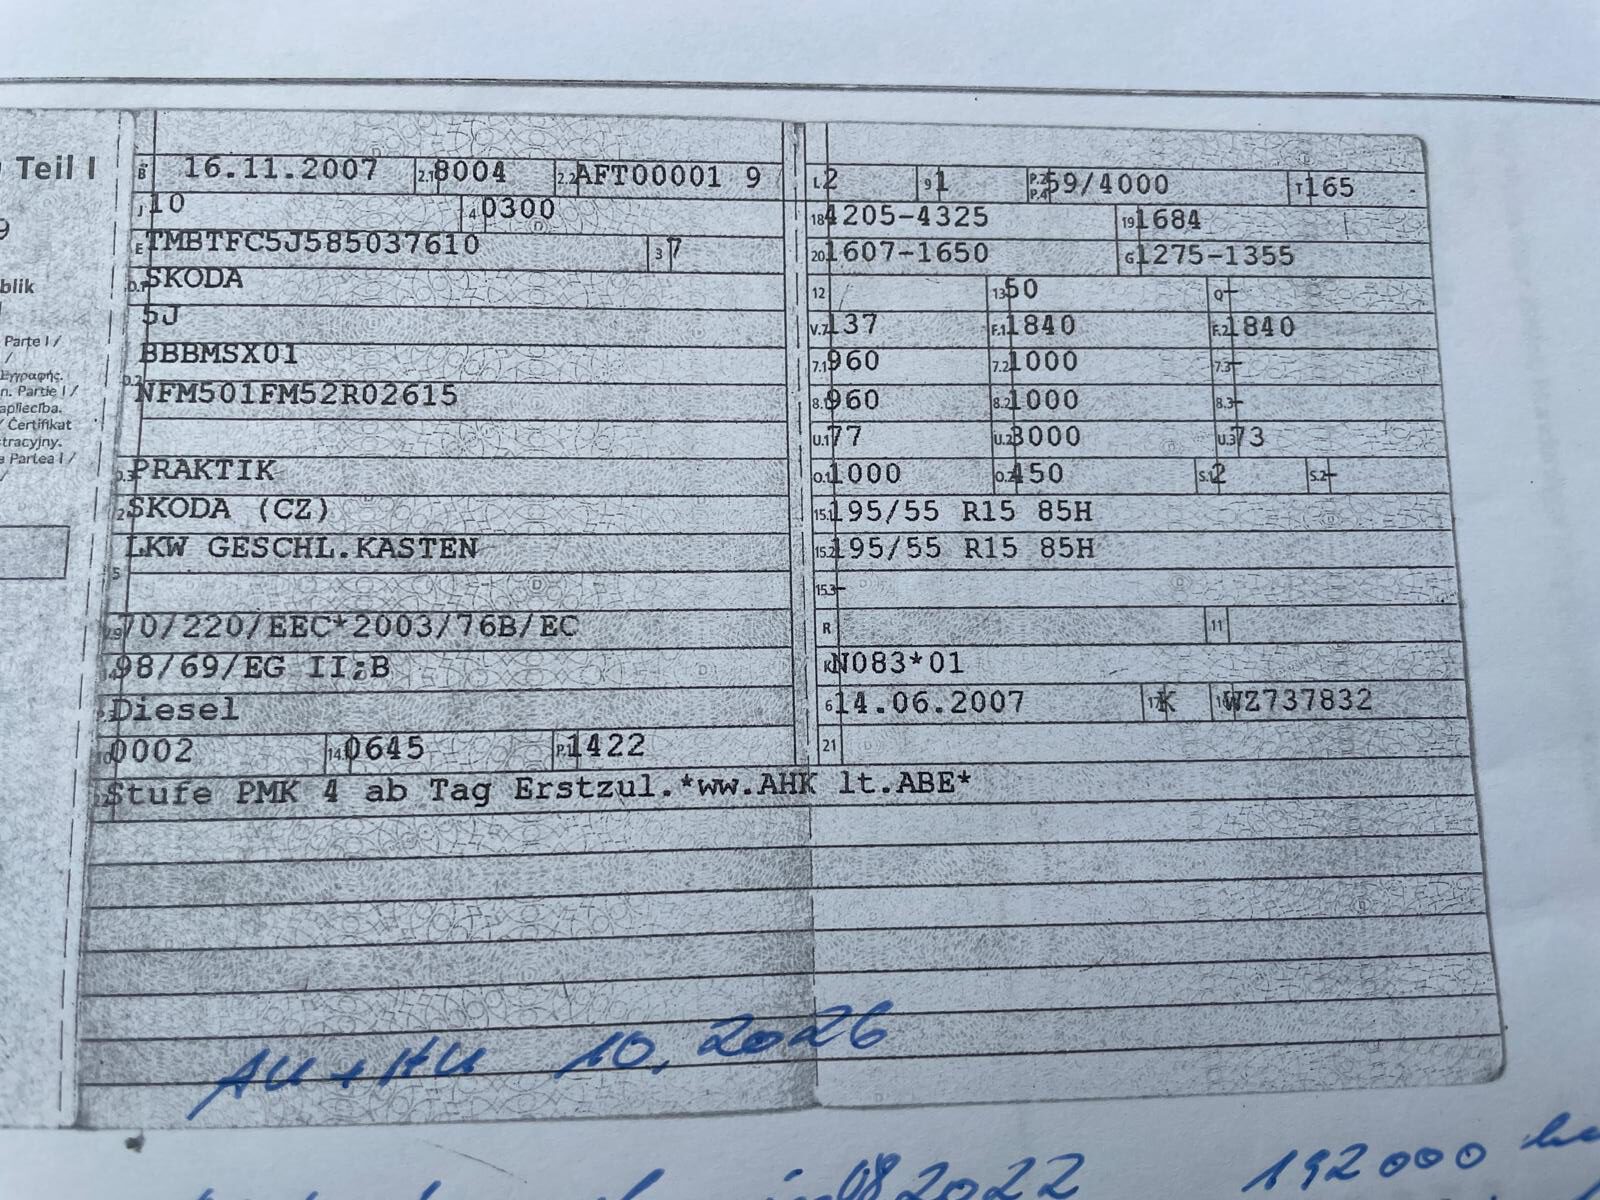 Teil I
9
blik
Parte I /
/
Εγγραφής.
n. Partie I /
apliecība.
/ Certifikat
tracyjny.
a Partea I /
B 16.11.2007 2.1 8004 2.2 AFT00001 9
J 10 4 0300
E TMBTFC5J585037610 3 7
D.1 SKODA
5J
BBBMSX01
D.2 NFM501FM52R02615
D.3 PRAKTIK
2 SKODA (CZ)
LKW GESCHL.KASTEN
5
V.9 70/220/EEC*2003/76B/EC
14 98/69/EG II;B
P.3 Diesel
10 0002 14.1 0645 P.1 1422
L 2 9 1 P.2 P.4 59/4000 T 165
18 4205-4325 19 1684
20 1607-1650 G 1275-1355
12 13 50 Q -
V.7 137 F.1 1840 F.2 1840
7.1 960 7.2 1000 7.3 -
8.1 960 8.2 1000 8.3 -
U.1 77 U.2 3000 U.3 73
O.1 1000 O.2 450 S.1 2 S.2 -
15.1 195/55 R15 85H
15.2 195/55 R15 85H
15.3 -
R 11
K N083*01
6 14.06.2007 17 K 16 WZ737832
21
Stufe PMK 4 ab Tag Erstzul.*ww.AHK lt.ABE*
AU + HU 10.2026
08 2022 192000